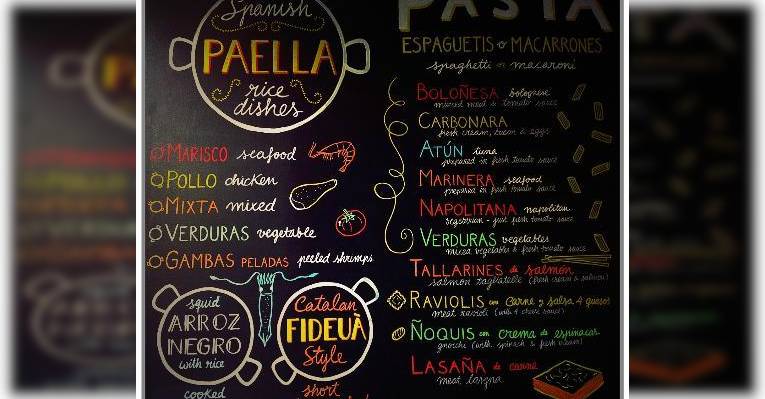 Spanish
PAELLA
rice
dishes
MARISCO seafood
POLLO chicken
MIXTA mixed
VERDURAS vegetable
GAMBAS PELADAS peeled shrimps
squid
ARROZ
NEGRO
with rice
cooked
Catalan
FIDEUÀ
Style
short
PASTA
ESPAGUETIS o MACARRONES
spaghetti or macaroni
BOLOÑESA bolognese
minced meat & tomato sauce
CARBONARA
fresh cream, bacon & eggs
ATÚN tuna
prepared in fresh tomato sauce
MARINERA seafood
prepared in fresh tomato sauce
NAPOLITANA napolitan
vegetarian - just fresh tomato sauce
VERDURAS vegetables
mixed vegetables & fresh tomato sauce
TALLARINES de salmón
salmon tagliatelle (fresh cream & salmon)
RAVIOLIS con carne y salsa 4 quesos
meat ravioli (with 4 cheese sauce)
ÑOQUIS con crema de espinacas
gnocchi (with spinach & fresh cream)
LASAÑA de carne
meat lasagna